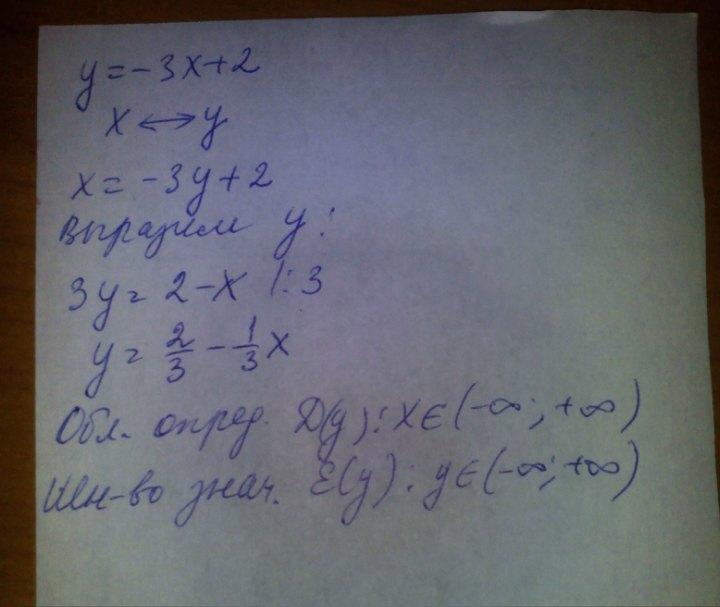 y = -3x+2
x ↔ y
x = -3y+2
Выразим y:
3y = 2-x |:3
y = 2/3 - 1/3 x
Обл. опред. D(y): x∈(-∞; +∞)
Мн-во знач. E(y): y∈(-∞; +∞)